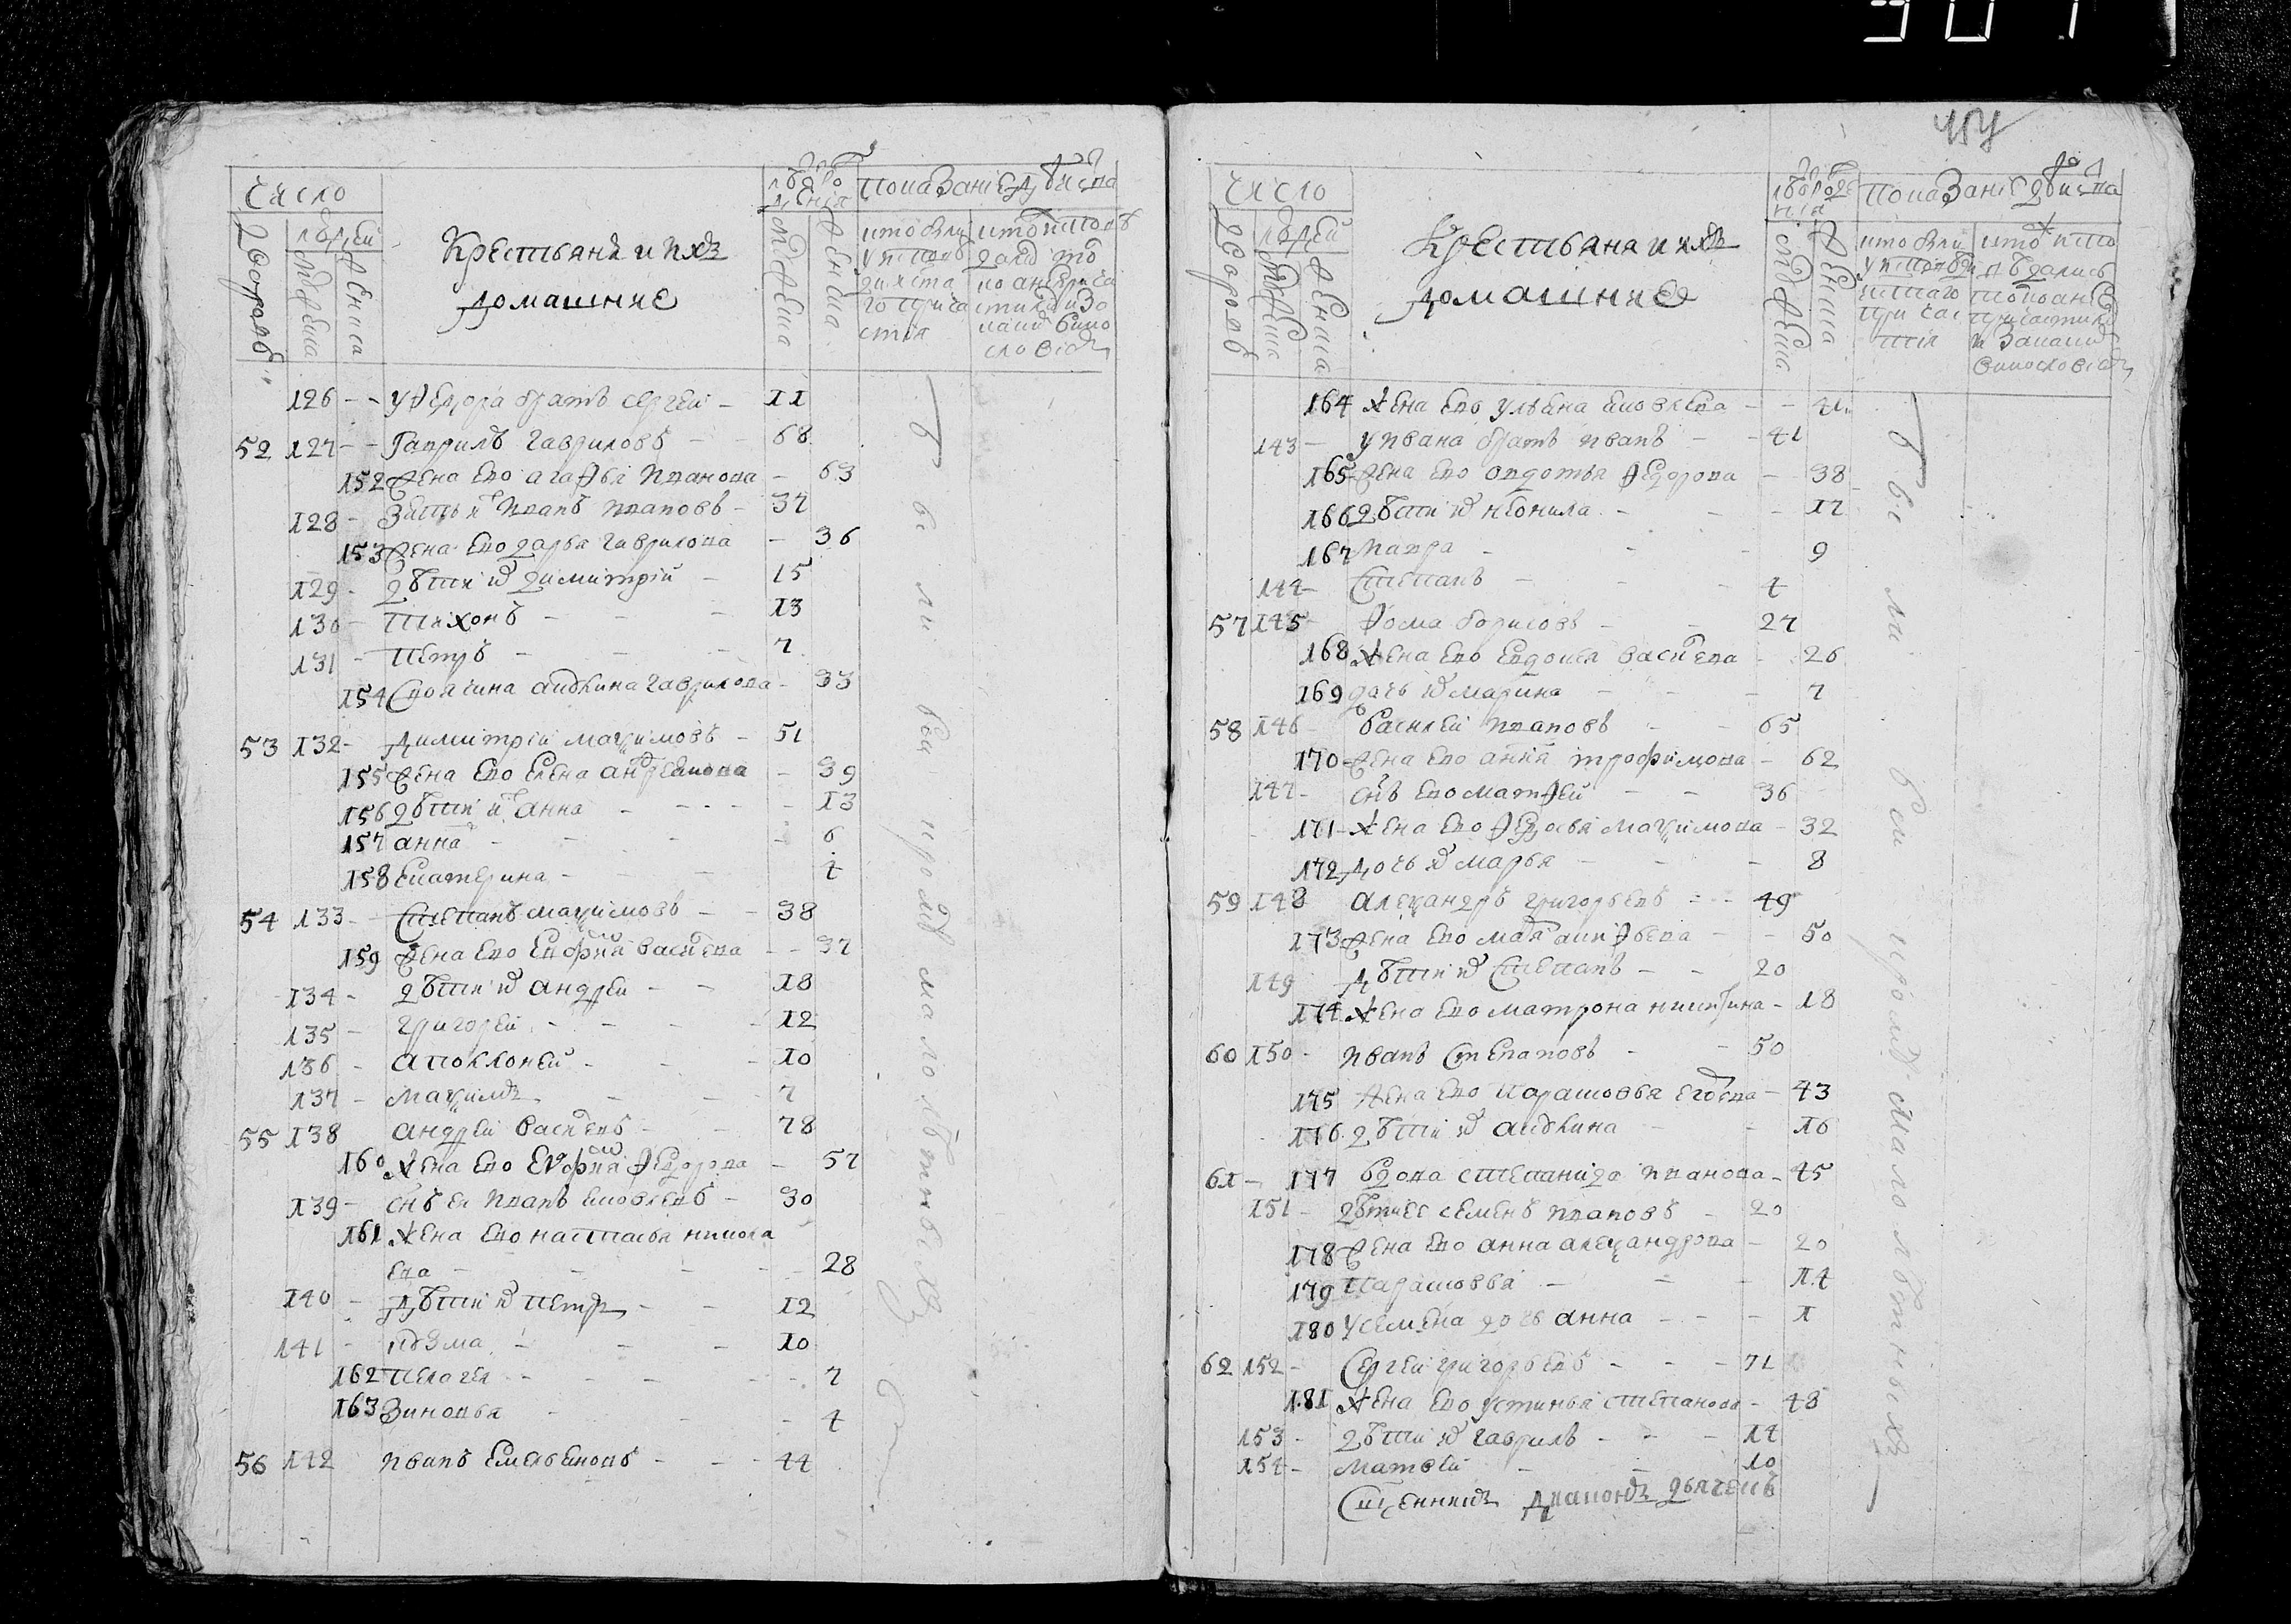 307
Число
дворовъ
людей
мужеска
женска
Крестьяня и ихъ
домашние
лѣта рождения
мужеска
женска
показаніе действа
кто были
у исповѣди
126 - - у федора братъ сергеи - 11
52 127 - - Гаврилъ гавриловъ - 68
152 жена ево агафья иванова - 63
128 - зять и҃ иванъ ивановъ - 37
153 жена ево дарья гаврилова - 36
129 - дѣти и҃ димитрїи - 15
130 - тихонъ - - 13
131 - петръ - - 7
154 своячина акилина гаврилова - 33
53 132 - димитрїи маѯимовъ - 51
155 жена ево елена андреянова - 39
156 дѣти и҃ анна - - - 13
157 анна - - - 6
158 екатерина - - 4
54 133 - степанъ маѯимовъ - - 38
159 жена ево евфросинїа васильева - - 37
134 - дѣти и҃ андреи - - 18
135 - григореи - - - 12
136 - аполлонеи - - - 10
137 - маѯимъ - - 7
55 138 андреи васильевъ - - 78
160 жена ево еѵфросинїа федорова - 57
139 - сн҃ъ ея иванъ яковлевъ - 30
161 жена ево настасья никола
ева - - - - 28
140 - дѣти и҃ петръ - - 12
141 - козма - - - 10
162 пелагея - - - - 7
163 зиновья - - 4
56 142 иванъ емельяновъ - - - 44
бы ли вси кромѣ малолѣтныхъ
Число
дворовъ
людей
мужеска
женска
Крестьяна и ихъ
домашние
лѣто рождения
мужеска
женска
показание действа
кто были
у исповѣди
164 жена ево ульяна яковлева - - 41
143 - у ивана братъ иванъ - - 41
165 жена ево авдотья федорова - 38
166 дѣти и҃ неонила - - - 17
167 мавра - - - 9
144 - степанъ - - - 4
57 145 - фома борисовъ - - 27
168 жена ево евдокея васильева - 26
169 дочь и҃ марина - - - 7
58 146 - василеи ивановъ - - 65
170 - жена ево анна трофимова - 62
147 - сн҃ъ ево матфеи - - 36
171 - жена ево федосья маѯимова - 32
172 дочь и҃ марья - - - 8
59 148 алеѯандръ григорьевъ - - 49
173 жена ево - - 50
149 дѣти и҃ степанъ - - 20
174 жена ево матрона никитина - 18
60 150 - иванъ степановъ - - 50
175 жена ево парасковья - 43
176 дѣти и҃ акилина - - 16
61 - 177 вдова степанида иванова - 45
151 - дѣти ее семенъ ивановъ - 20
178 жена ево анна алеѯандрова - 20
179 парасковья - - - 14
180 у семена дочь анна - - - 1
62 152 - сергеи григорьевъ - - - 71
181 жена ево устинья степанова - 48
153 - дѣти и҃ гаврилъ - - - 14
154 - матвеи - - 10
Сщенникъ диаконъ дьячекъ
бы ли вси кромѣ малолѣтныхъ